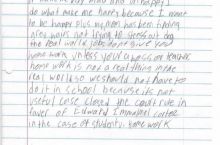 do what make me happy because I want
to be happy plus my mom has been
area your not trying to stress out dog
the real world jobs dont give you
home work unless your a boss or teacher
home work is not a real thing in the
real world so we should not have to
do it in school because its not
useful case closed the court rule in
favor of Edward Immanuel
in the case of students home work